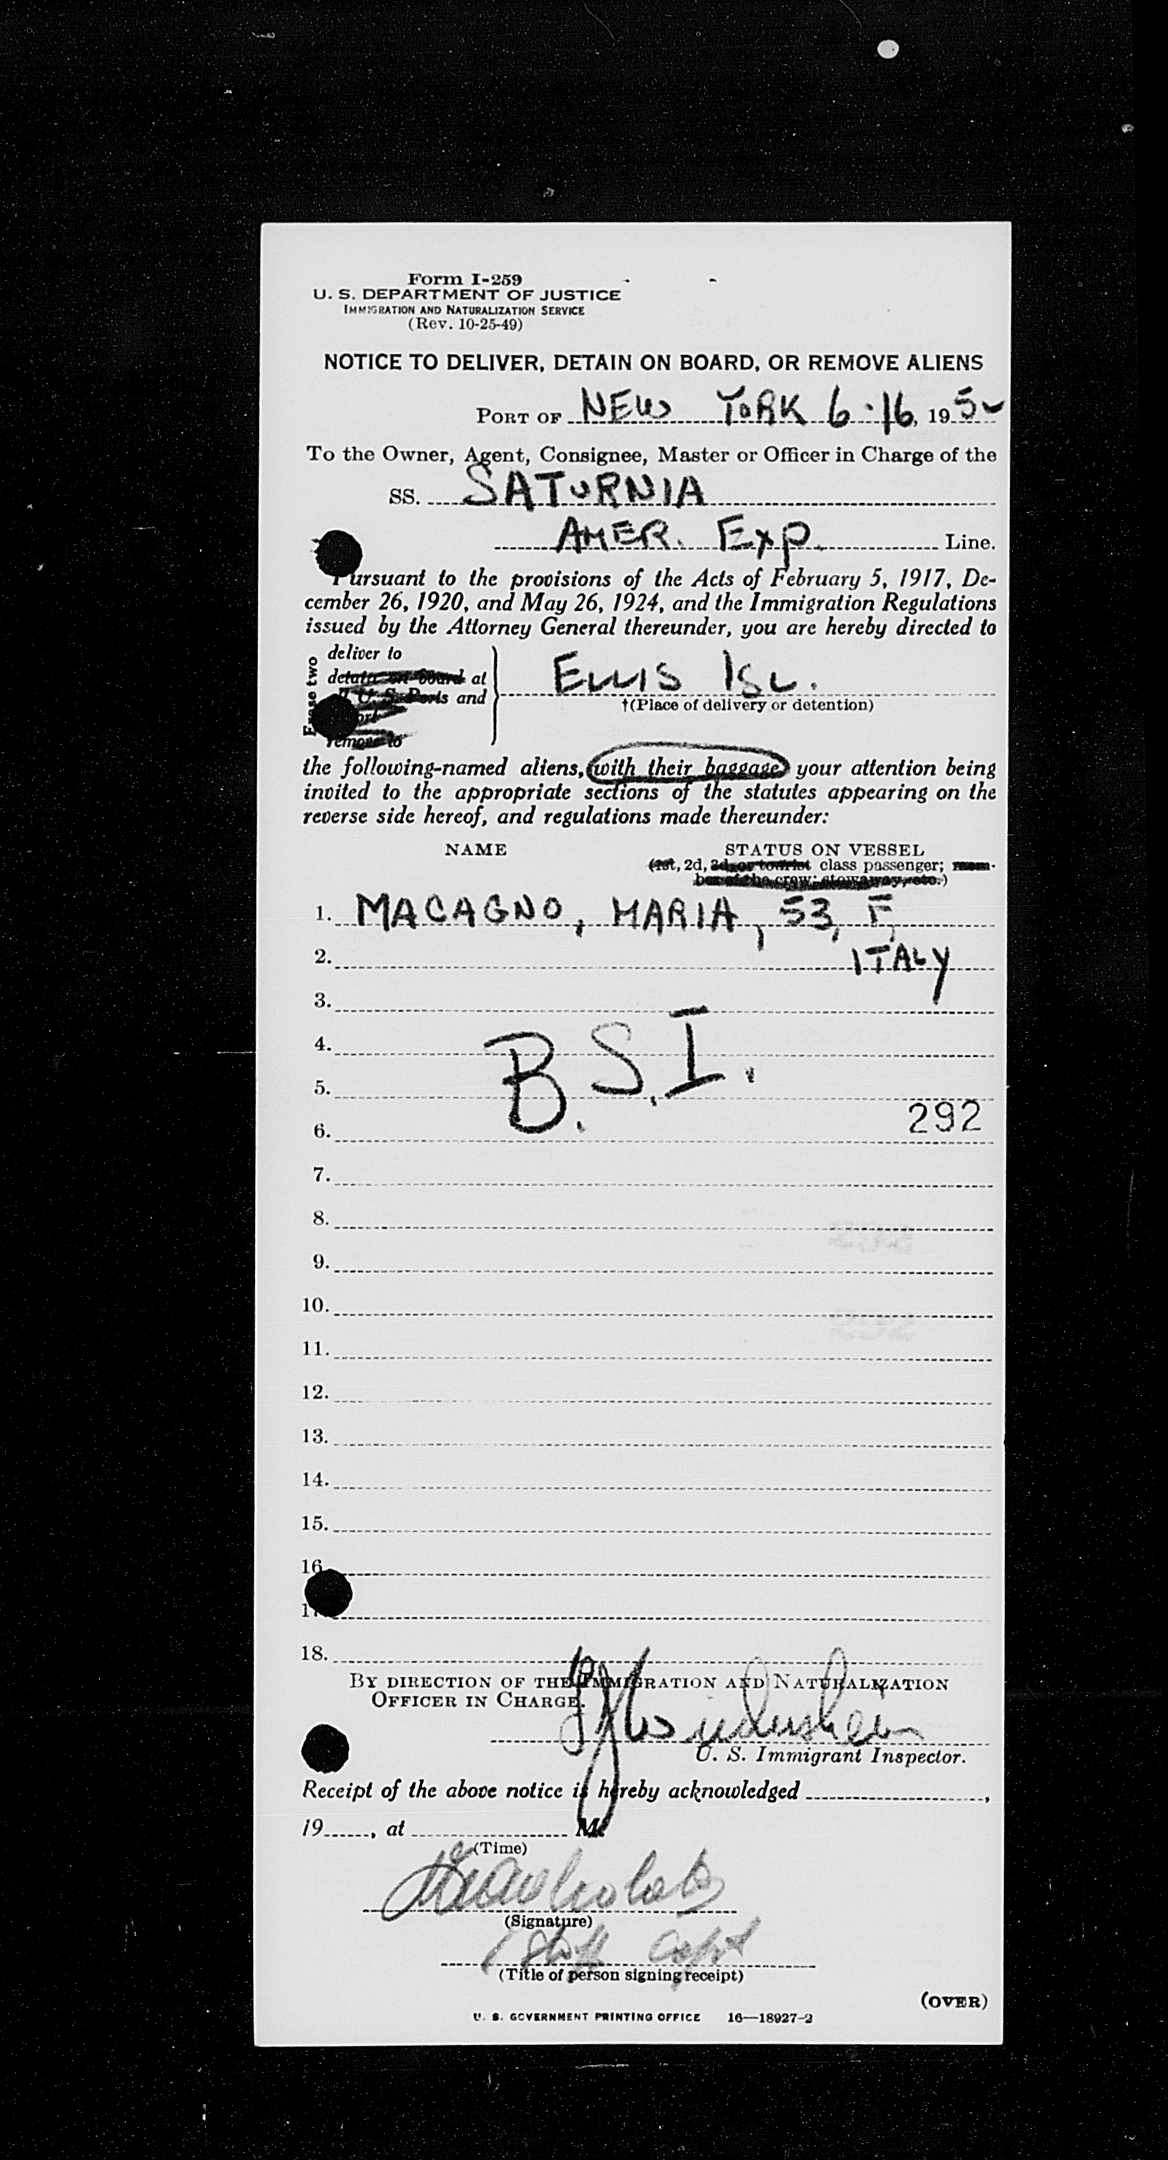 Form I-259
U. S. DEPARTMENT OF JUSTICE
IMMIGRATION AND NATURALIZATION SERVICE
(Rev. 10-25-49)
NOTICE TO DELIVER, DETAIN ON BOARD, OR REMOVE ALIENS
PORT OF NEW YORK 6-16, 1952
To the Owner, Agent, Consignee, Master or Officer in Charge of the
SS. SATURNIA
AMER. EXP. Line.
Pursuant to the provisions of the Acts of February 5, 1917, De-
cember 26, 1920, and May 26, 1924, and the Immigration Regulations
issued by the Attorney General thereunder, you are hereby directed to
Erase two
deliver to
detain on board at
U S Ports and
remove to
ELLIS ISL.
†(Place of delivery or detention)
the following-named aliens, with their baggage your attention being
invited to the appropriate sections of the statutes appearing on the
reverse side hereof, and regulations made thereunder:
NAME STATUS ON VESSEL
(1st, 2d, 3d, or tourist class passenger; mem-
ber of the crew; stowaway, etc.)
1. MACAGNO, MARIA, 53, F,
2. ITALY
3.
4.
B.S.I.
5.
292
6.
7.
8.
9.
10.
11.
12.
13.
14.
15.
16.
17.
18.
BY DIRECTION OF THE IMMIGRATION AND NATURALIZATION
OFFICER IN CHARGE.
U. S. Immigrant Inspector.
Receipt of the above notice is hereby acknowledged ,
19 , at M.
(Time)
(Signature)
(Title of person signing receipt)
(OVER)
U. S. GOVERNMENT PRINTING OFFICE 16—18927-2